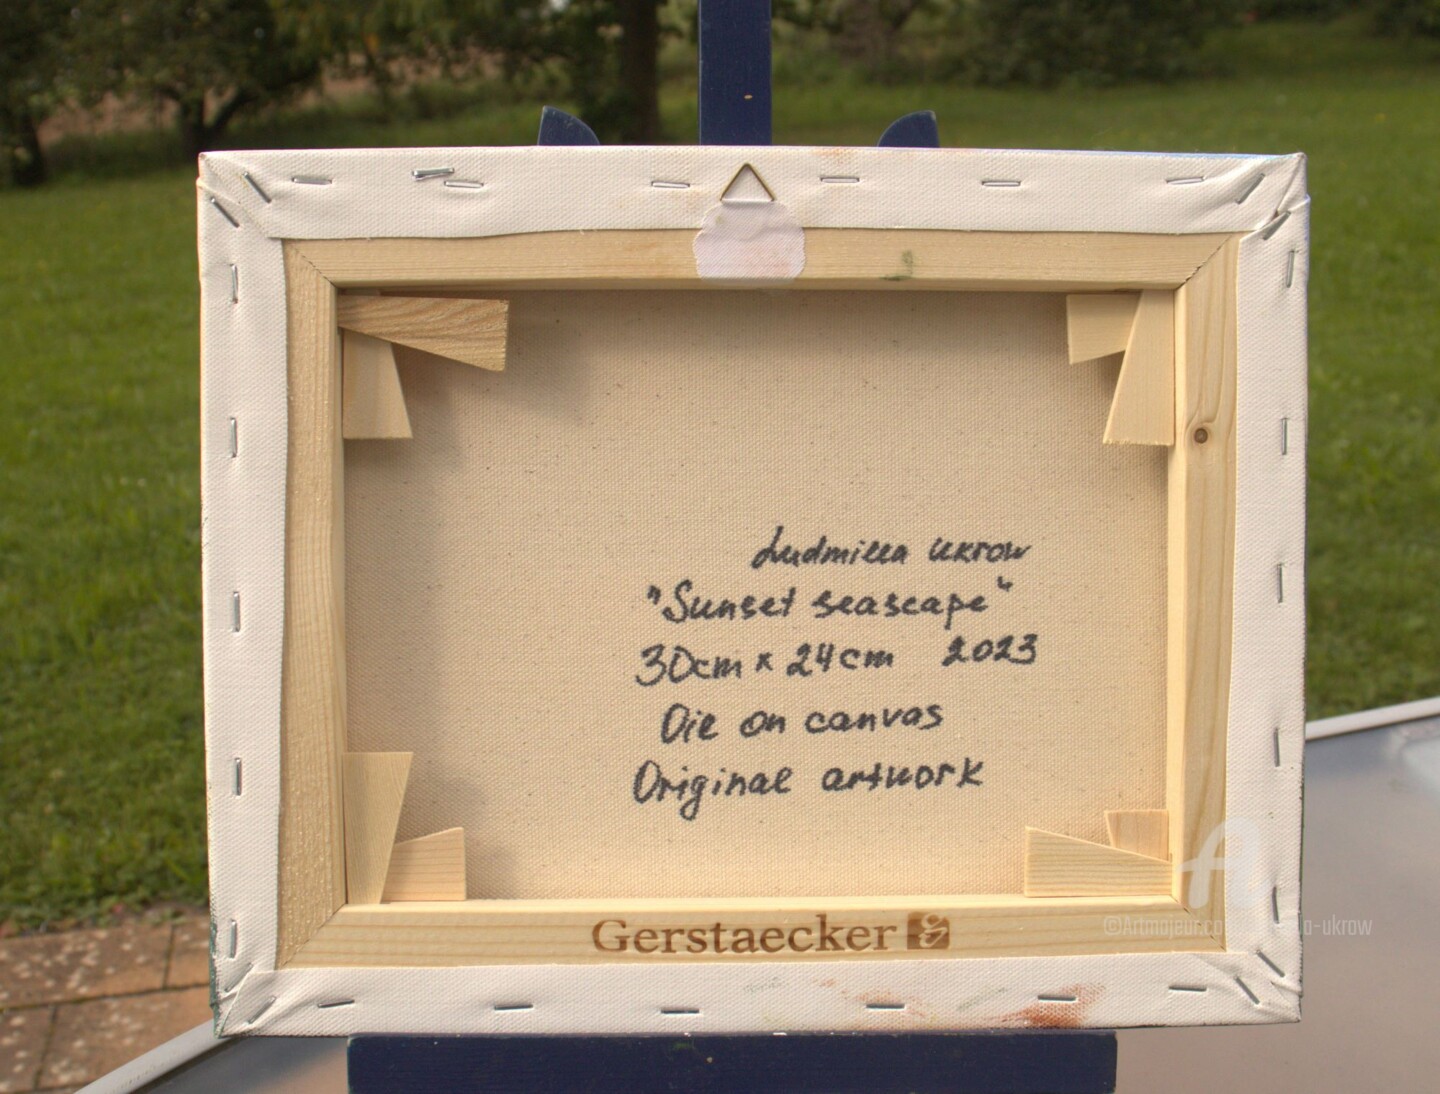 Ludmilla Ukrow
"Sunset seascape"
30cm x 24cm 2023
Oil on canvas
Original artwork
Gerstaecker
©Artmajeur.com
a-ukrow